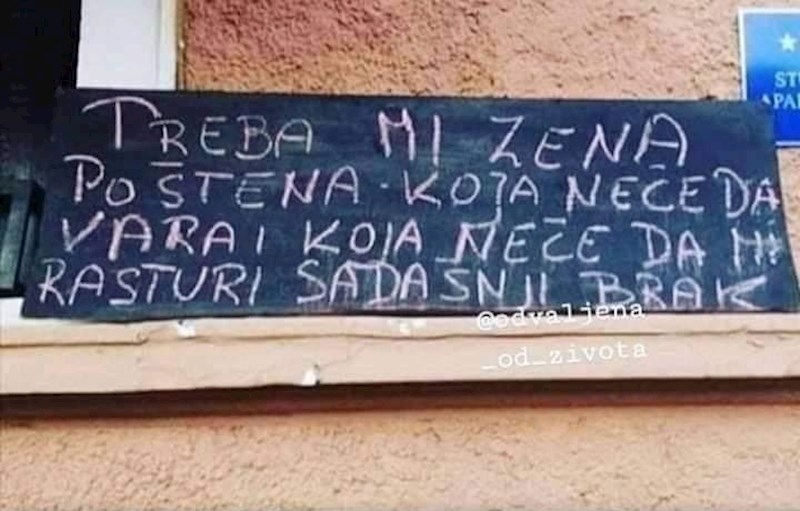 TREBA MI ZENA
POŠTENA - KOJA NEĆE DA
VARA I KOJA NEĆE DA MI
RASTURI SADAŠNJI BRAK
@odvaljena
_od_zivota